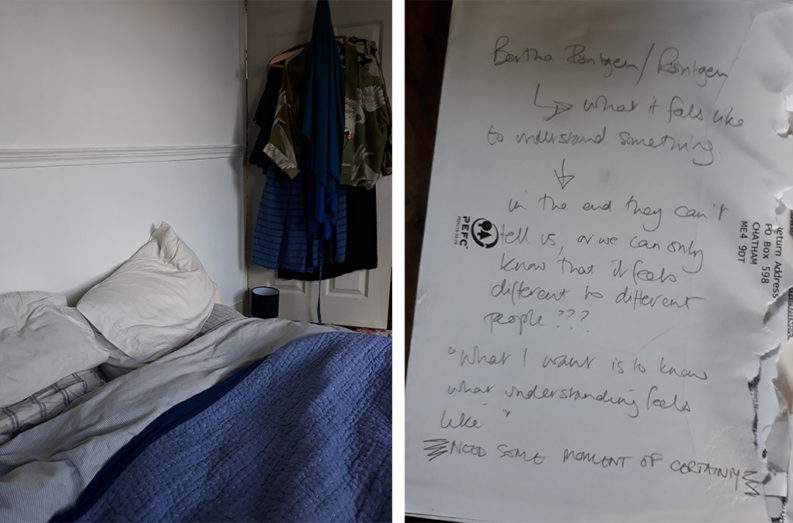 Bertha Röntgen / Röntgen
↳ what it feels like
to understand something
↓
in the end they can't
tell us, or we can only
know that it feels
different to different
people???
"What I want is to know
what understanding feels
like"
NEED SOME MOMENT OF CERTAINTY
PEFC
Return Address
PO BOX 598
CHATHAM
ME4 9DT